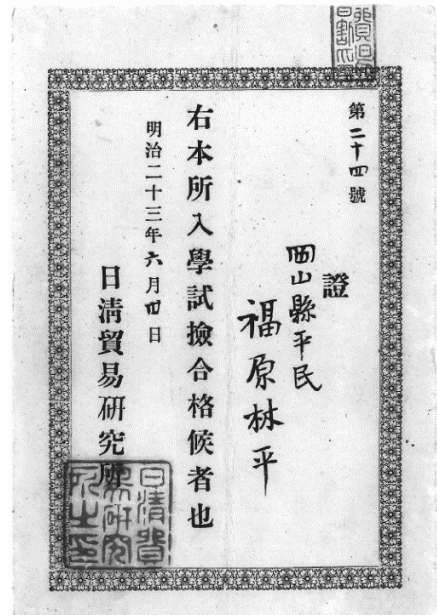 第二十四號
證
岡山縣平民
福原林平
右本所入學試撿合格候者也
明治二十三年六月四日
日清貿易研究所
日清貿
易研究
所之印